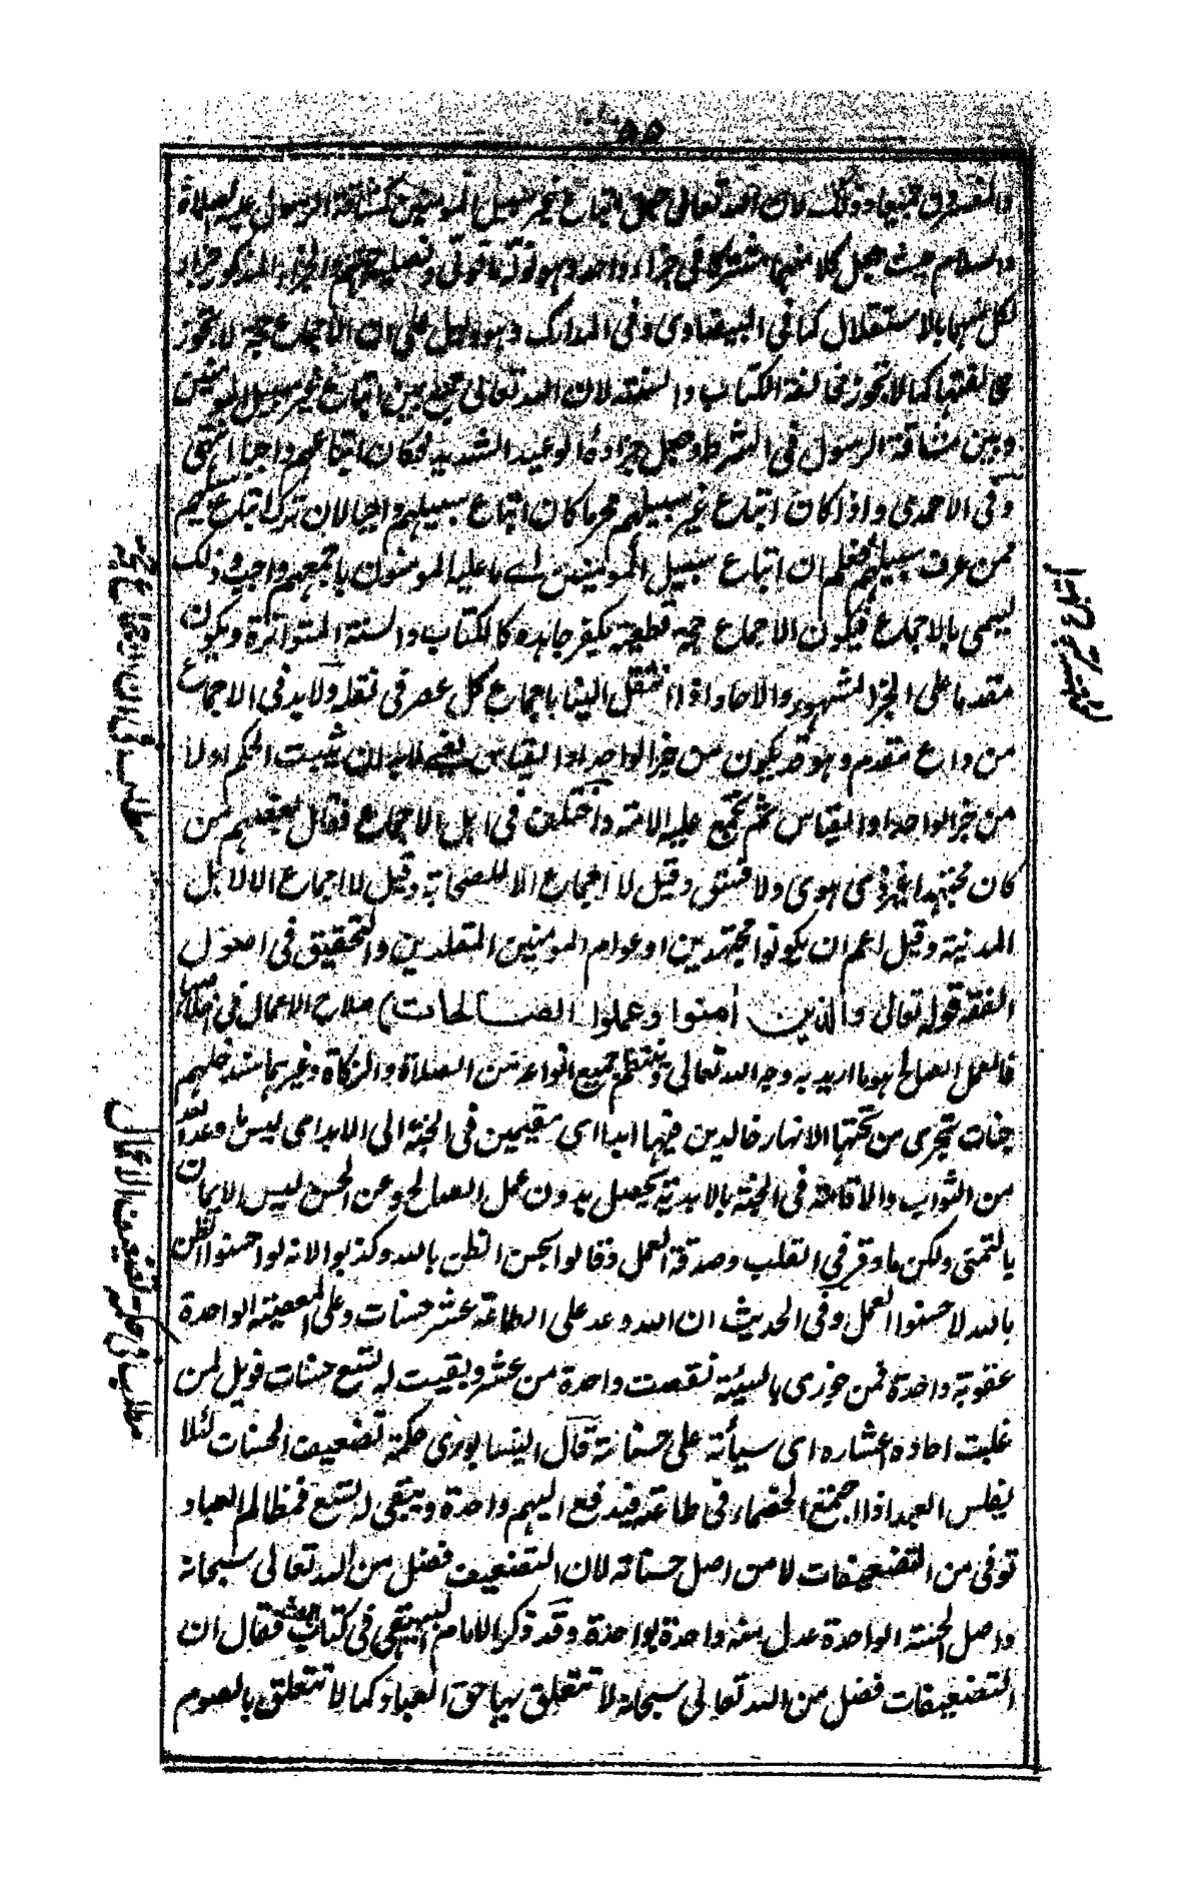 ٥٥
والمفسرون جميعا وذلك لان الله تعالى جعل اتباع غير سبيل المؤمنين كمشاقة الرسول عليه الصلاة
والسلام حيث جعل كلا منهما مشتركا في جزاء واحد وهو نوله ما تولى ونصليه جهنم والجزاء المذكور جزاء
لكل منهما بالاستقلال كما في البيضاوى وفى المدارك وهو دليل على ان الاجماع حجة لا تجوز
مخالفتها كما لا تجوز مخالفة الكتاب والسنة لان الله تعالى جمع بين اتباع غير سبيل المؤمنين
وبين مشاقة الرسول فى الشرط وجعل جزاءه الوعيد الشديد فكان اتباعهم واجبا انتهى
وفى الاحمدى واذا كان اتباع غير سبيلهم محرما كان اتباع سبيلهم واجبا لان ترك اتباع سبيلهم
فمن عرف سبيلهم فعلم ان اتباع سبيل المؤمنين اى ما عليه المومنون باجمعهم واجب وذلك
ليسمى بالاجماع فيكون الاجماع حجة قطعية يكفر جاحده كالكتاب والسنة المتواترة ويكون
مقدما على الخبر المشهور والاحاد اذا انتقل الينا باجماع كل عصر فى نقله ولا بد فى الاجماع
من داع مقدم وهو قد يكون من خبر الواحد او القياس يثبت الحكم اولا
من خبر الواحد او القياس ثم تجمع عليه الامة واختلف فى اهل الاجماع فقال بعضهم من
كان مجتهدا غير ذى هوى ولا فسق وقيل لا اجماع الا للصحابة وقيل لا اجماع الا لاهل
المدينة وقيل اعم ان يكونوا مجتهدين او عوام المومنين المقلدين والتحقيق فى اصول
الفقه قوله تعالى والذين أمنوا وعملوا الصالحات) صلاح الاعمال فى اخلاصها
فالعمل الصالح هو ما اريد به وجه الله تعالى وينتظم جميع انواعه من الصلاة والزكاة وغيرهما سندخلهم
جنات تجرى من تحتها الانهار خالدين فيها ابدا اى مقيمين فى الجنة الى الابد اى ليس ما وعد الله
من الثواب والاقامة فى الجنة بالابدية يحصل بدون عمل الصالح وعن الحسن ليس الايمان
بالتمنى ولكن ما وقر في القلب وصدقه العمل وقالوا نحسن الظن بالله وكذبوا لانه لو احسنوا الظن
بالله لاحسنوا العمل وفى الحديث ان الله وعد على الطاعة عشر حسنات وعلى المعصية الواحدة
عقوبة واحدة فمن جوزى بالسيئة نقصت واحدة من عشر وبقيت له تسع حسنات فويل لمن
غلبت احاده اعشاره اى سيأته على حسناته قال النيسابورى حكمة تضعيف الحسنات لئلا
يفلس العبد اذا اجتمع الخصماء فى طاعته فيدفع اليهم واحدة ويبقى له تسع فمظالم العباد
توفى من التضعيفات لا من اصل حسناته لان التضعيف فضل من الله تعالى سبحانه
واصل الحسنة الواحدة عدل منه واحدة بواحدة وقد ذكر الامام البيهقى فى كتاب البعث فقال ان
التضعيفات فضل من الله تعالى سبحانه لا تتعلق بها حق العباد كما لا تتعلق بالصوم
مطلب فى ان الاجماع حجة
مطلب فى حكم تضعيف الاعمال